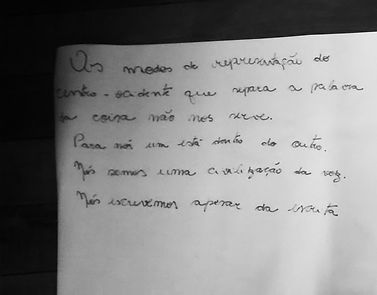 Os modos de representação do
centro-ocidente que separa a palavra
da coisa não nos serve.
Para nós um está dentro do outro.
Nós somos uma civilização da voz.
Nós escrevemos apesar da escrita